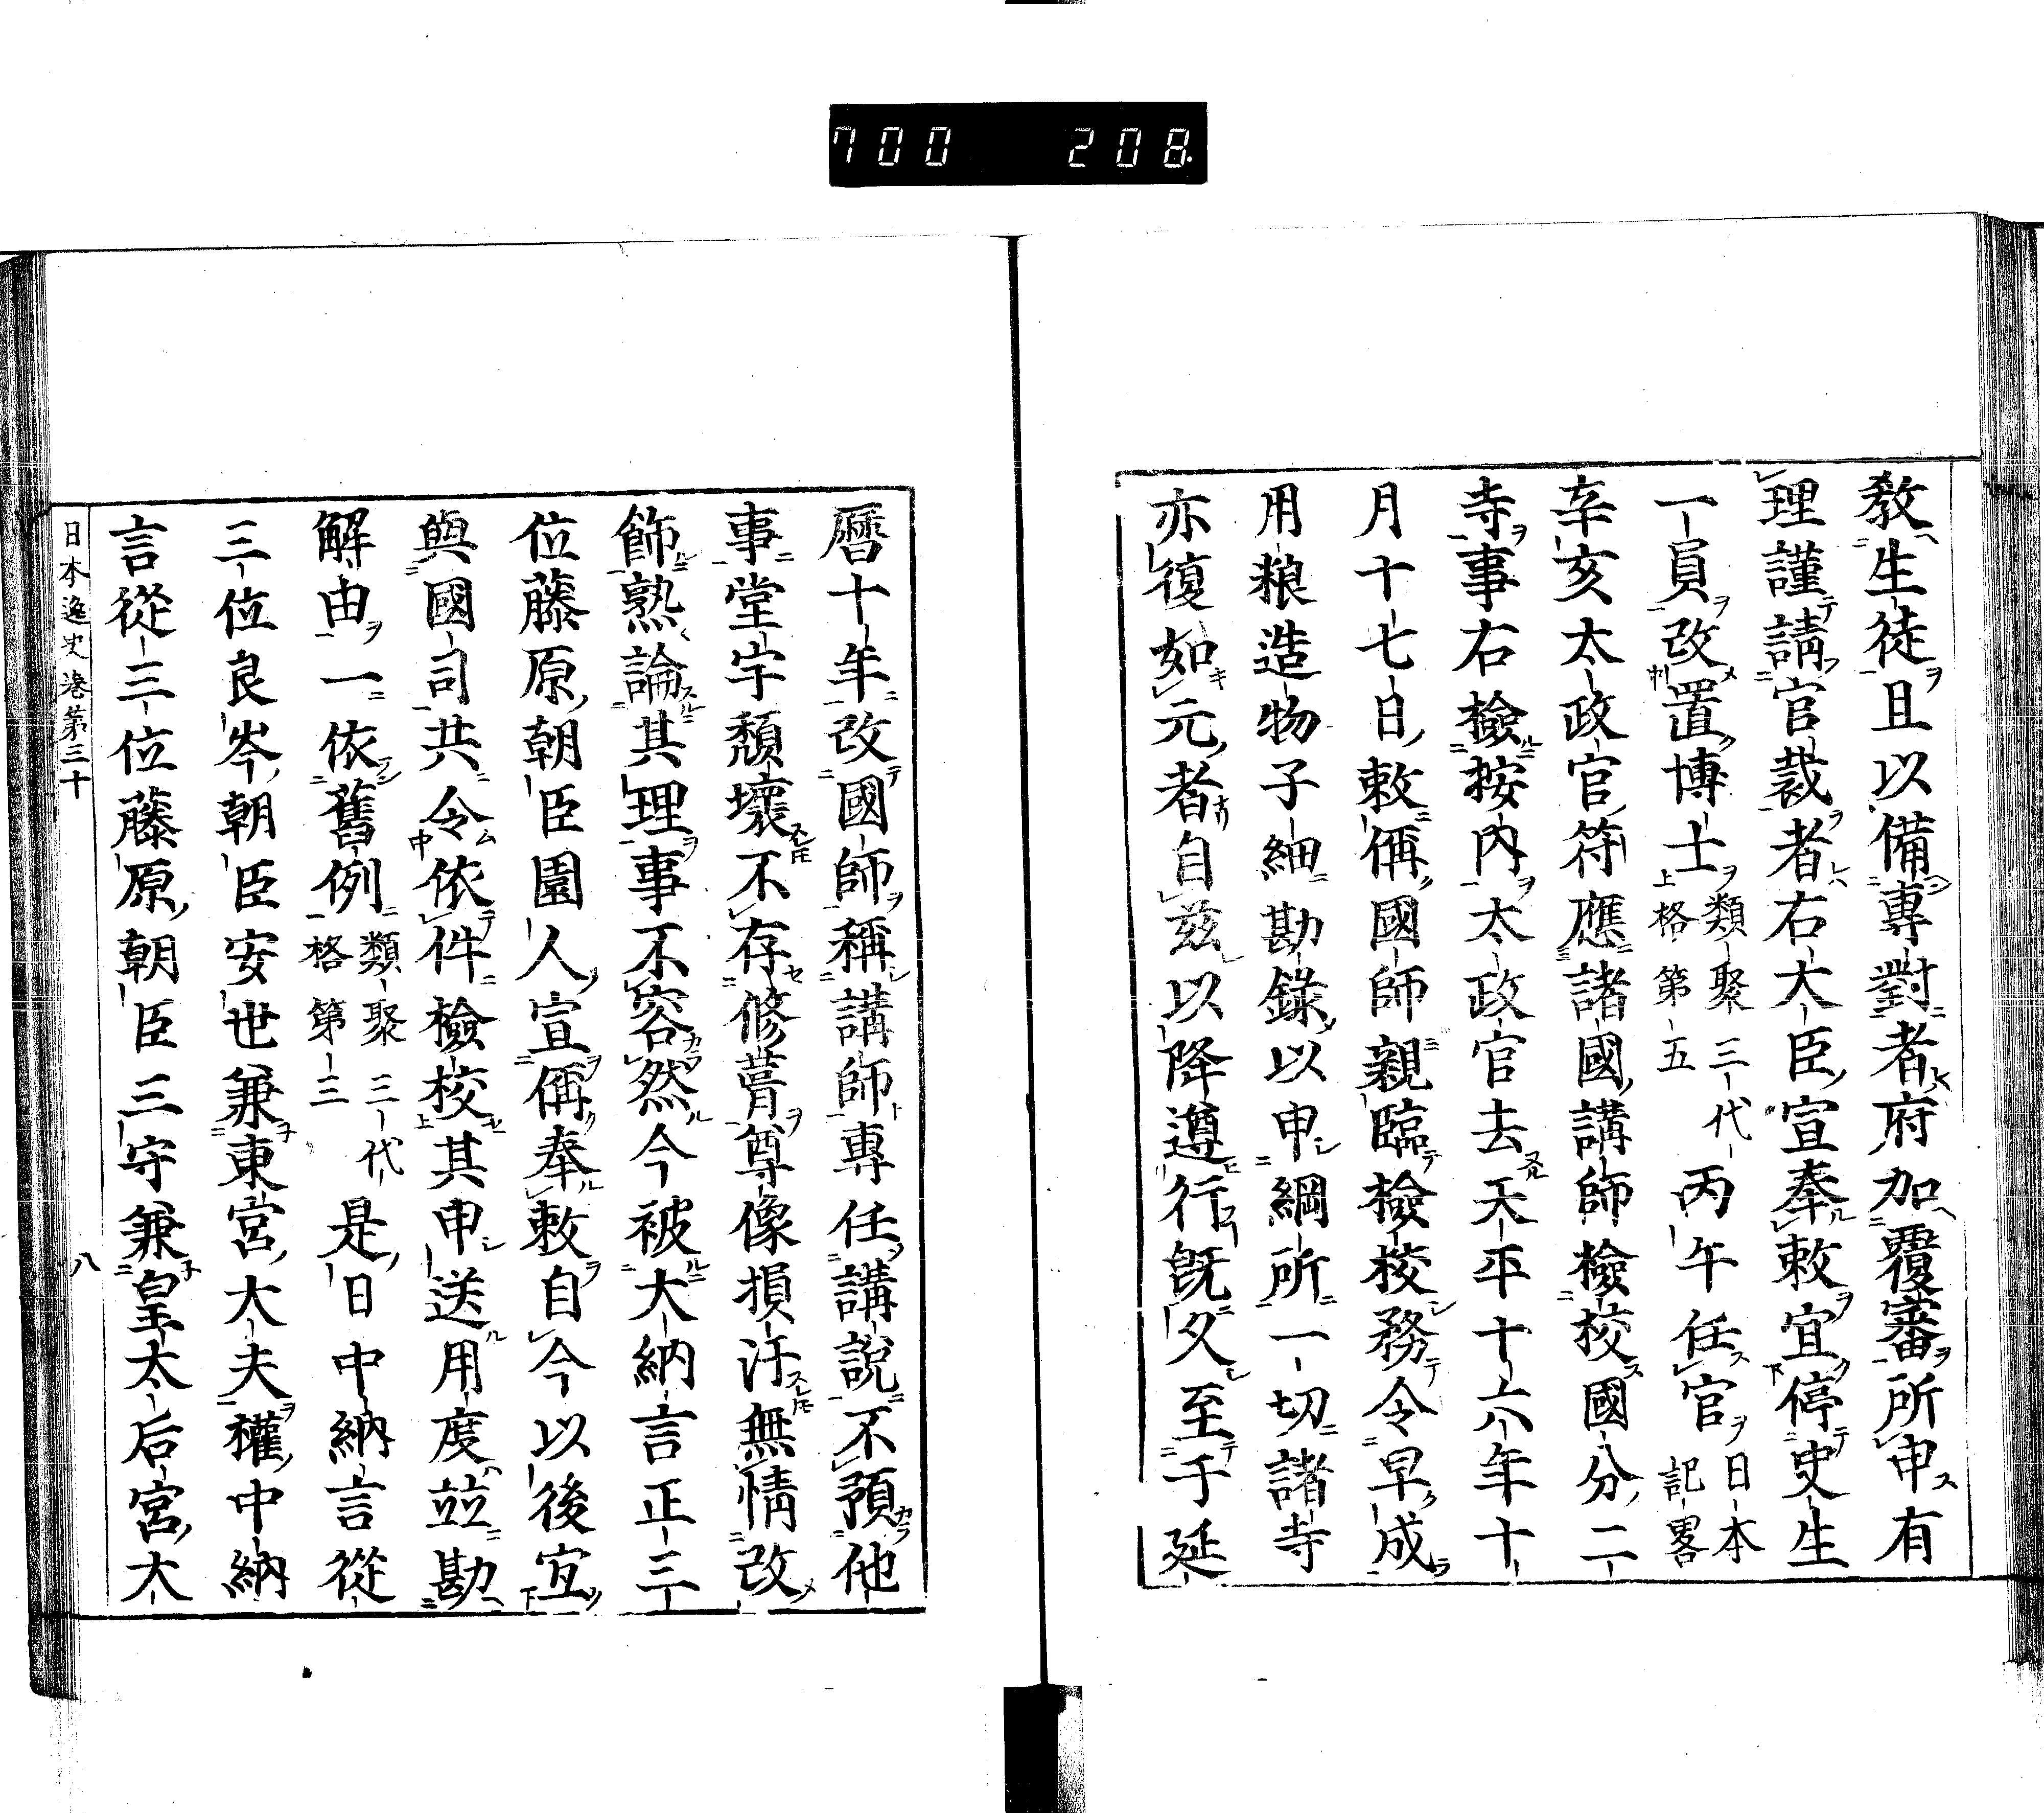 700 208
教生徒且以備專對者府加覆審所申有
理謹請官裁者右大臣宣奉敕宜停史生
一員改置博士類聚三代格第五丙午任官日本記畧
辛亥太政官符應諸國講師檢校國分二
寺事右檢按內太政官去天平十六年十
月十七日敕偁國師親臨檢校務令早成
用粮造物子細勘錄以申綱所一切諸寺
亦復如元者自玆以降遵行既久至于延
曆十年改國師稱講師專任講說不預他
事堂宇頹壞不存修葺尊像損汙無情改
飾熟論其理事不容然今被大納言正三
位藤原朝臣園人宣偁奉敕自今以後宜
與國司共令依件檢校其申送用度竝勘
解由一依舊例類聚三代格第三是日中納言從
三位良岑朝臣安世兼東宮大夫權中納
言從三位藤原朝臣三守兼皇太后宮大
日本逸史卷第三十
八